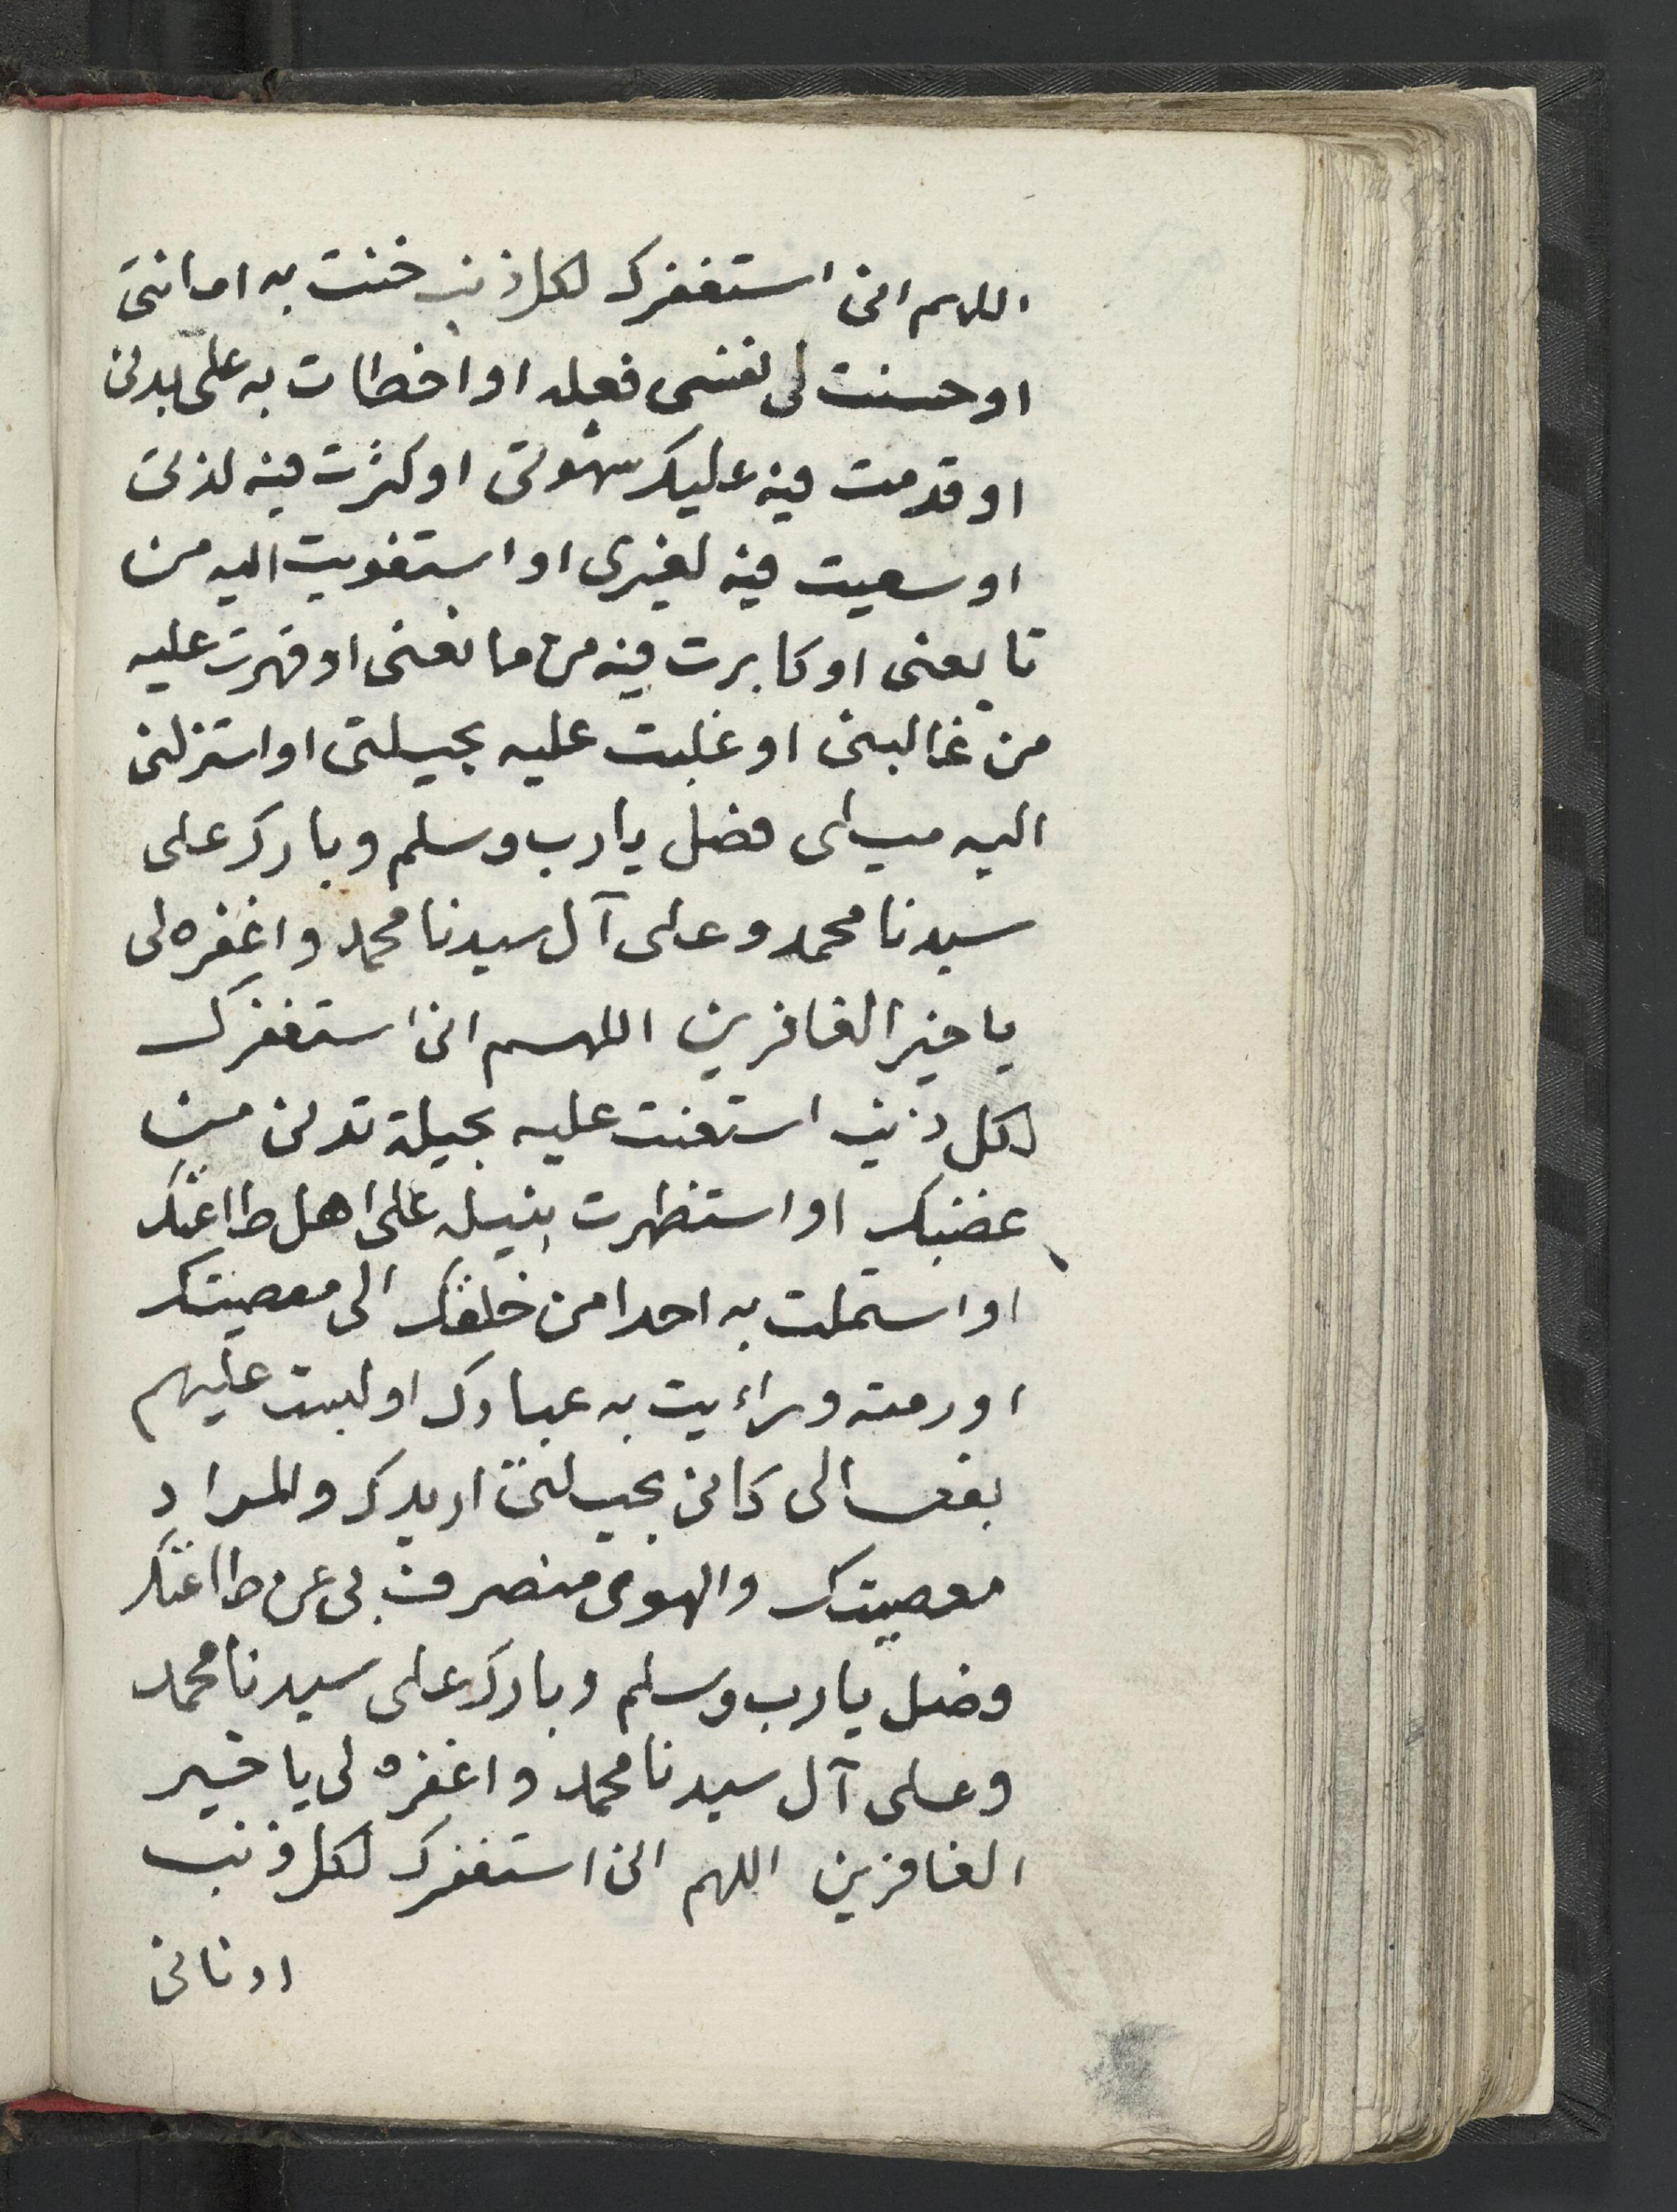 اللهم انى استغفرك لكل ذنب خنت به امانتى
او حسنت لى نفسى فعله او اخطات به على بدنى
او قدمت فيه عليك شهوتى او كثرت فيه لذتى
او سعيت فيه لغيرى او استغويت اليه من
تابعنى او كابرت فيه من مانعنى او قهرت عليه
من غالبنى او غلبت عليه بحيلتى او استزلنى
اليه ميلى فصل يا رب وسلم وبارك على
سيدنا محمد وعلى آل سيدنا محمد واغفره لى
يا خير الغافرين اللهم انى استغفرك
لكل ذنب استعنت عليه بحيلة تدنى من
غضبك او استظهرت بنيله على اهل طاعتك
او استملت به احدا من خلقك الى معصيتك
او رمته وراءيت به عبادك او لبست عليهم
بفعالى كانى بحيلتى اريدك والمراد
معصيتك والهوى منصرف بى عن طاعتك
فصل يا رب وسلم وبارك على سيدنا محمد
وعلى آل سيدنا محمد واغفره لى يا خير
الغافرين اللهم انى استغفرك لكل ذنب